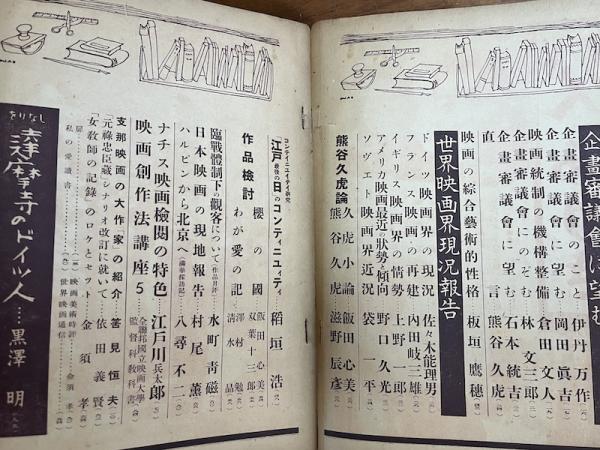 企畫審議會に望む
企畫審議會のこと 伊丹万作
企畫審議會に望む 岡田眞吉
映画統制の機構整備 倉田文人
企畫審議會にのぞむ 林文三郎
企畫審議會に望む 石本統吉
直言 熊谷久虎
映画の綜合藝術的性格 板垣鷹穗
世界映画界現況報告
ドイツ映画界の現況 佐々木能理男
フランス映画の再建 內田岐三雄
イギリス映画界の情勢 上野一郎
アメリカ映画最近の狀勢と傾向 野口久光
ソヴエト映画界近況 袋一平
熊谷久虎論
久虎小論 飯田心美
熊谷久虎 滋野辰彥
コンテイニユイテイ硏究
「江戸最後の日」のコンテイニユイテイ 稻垣浩
作品檢討
櫻の國 飯田心美 双葉十三郎
わが愛の記 澤村勉 清水晶
臨戰體制下の觀客について(作品月評) 水町靑磁
日本映画の現地報告 村尾薫
ハルピンから北京へ(滿華採訪記) 八尋不二
ナチス映画檢閱の特色 江戸川兵太郎
映画創作法講座 5 全聯邦國立映画大學監督科教科書
支那映画の大作「家」の紹介 筈見恒夫
「元祿忠臣藏」シナリオ改訂に就いて 依田義賢
「女敎師の記錄」のロケとセット 金須孝
扉
私の愛讀書
映画美術時評 金須孝
世界映画通信
をりなし
達磨寺のドイツ人……黒澤明